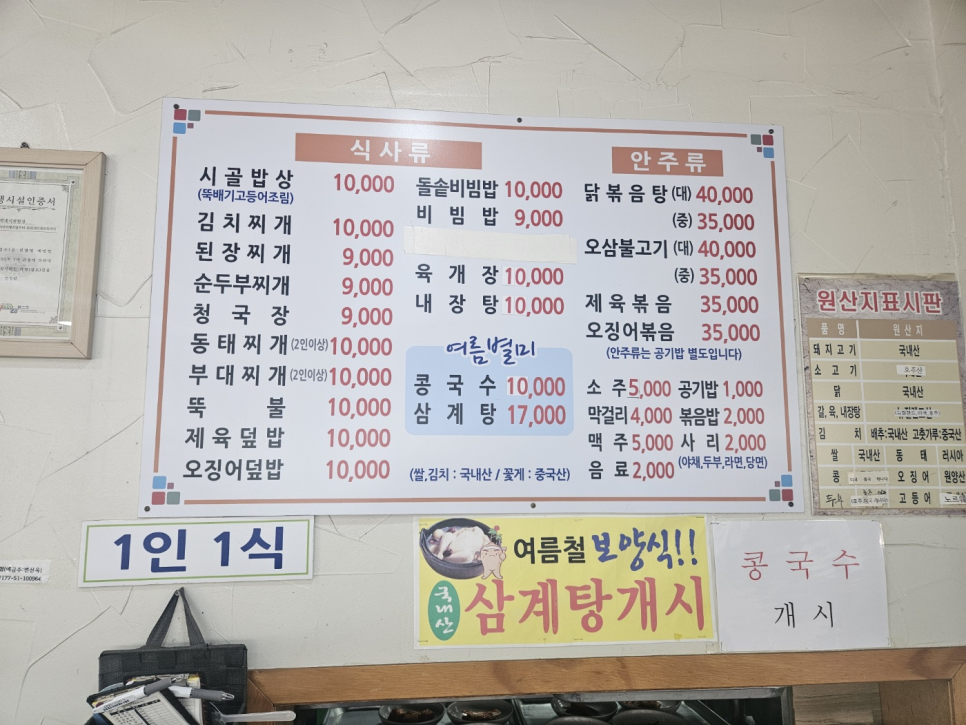 식사류
시골밥상 10,000
(뚝배기고등어조림)
김치찌개 10,000
된장찌개 9,000
순두부찌개 9,000
청국장 9,000
동태찌개(2인이상) 10,000
부대찌개(2인이상) 10,000
뚝불 10,000
제육덮밥 10,000
오징어덮밥 10,000
돌솥비빔밥 10,000
비빔밥 9,000
육개장 10,000
내장탕 10,000
여름별미
콩국수 10,000
삼계탕 17,000
(쌀,김치 : 국내산 / 꽃게 : 중국산)
안주류
닭볶음탕 (대) 40,000
(중) 35,000
오삼불고기 (대) 40,000
(중) 35,000
제육볶음 35,000
오징어볶음 35,000
(안주류는 공기밥 별도입니다)
소주 5,000 공기밥 1,000
막걸리 4,000 볶음밥 2,000
맥주 5,000 사리 2,000
음료 2,000 (야채,두부,라면,당면)
원산지표시판
품명 원산지
돼지고기 국내산
소고기
닭 국내산
갈,육,내장탕
김치 배추:국내산 고춧가루:중국산
쌀 국내산 동태 러시아
콩 오징어 원양산
두부 고등어
1인 1식
여름철 보양식!!
국내산
삼계탕개시
콩국수
개시